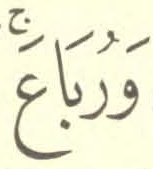 وَرُبَاعَ ۚ